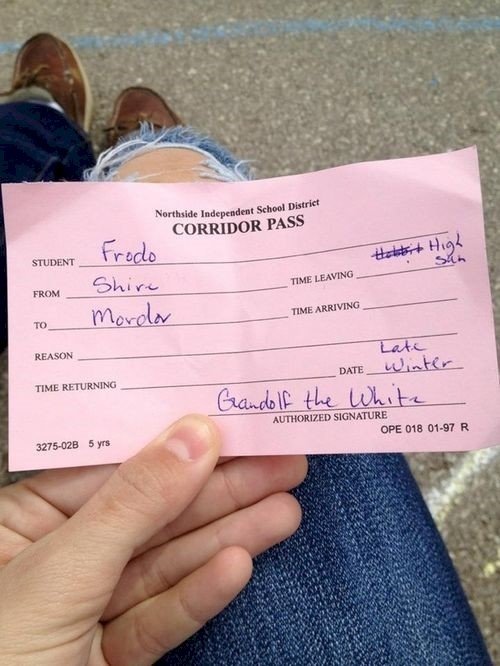 Northside Independent School District
CORRIDOR PASS
STUDENT Frodo
FROM Shire TIME LEAVING Hobbit High Sun
TO Mordor TIME ARRIVING
REASON
TIME RETURNING DATE Late Winter
Grandolf the White
AUTHORIZED SIGNATURE
3275-02B 5 yrs OPE 018 01-97 R